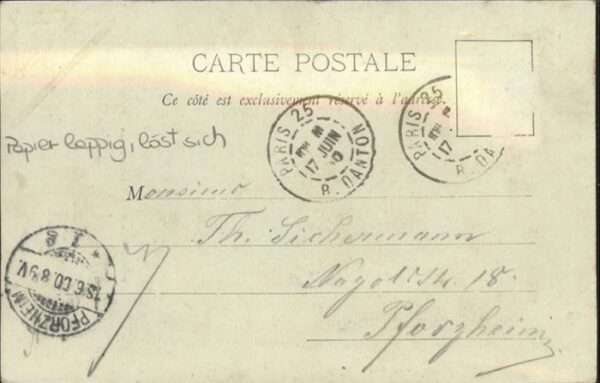 CARTE POSTALE
Ce côté est exclusivement réservé à l'adresse.
PARIS 25
17 JUIN
R. DANTON
PARIS 25
17
R. DA
Papier lappig, löst sich
Monsieur
Th. Sichermann
18
Pforzheim
PFORZHEIM
18.6.00.8-9V.
* 1 g